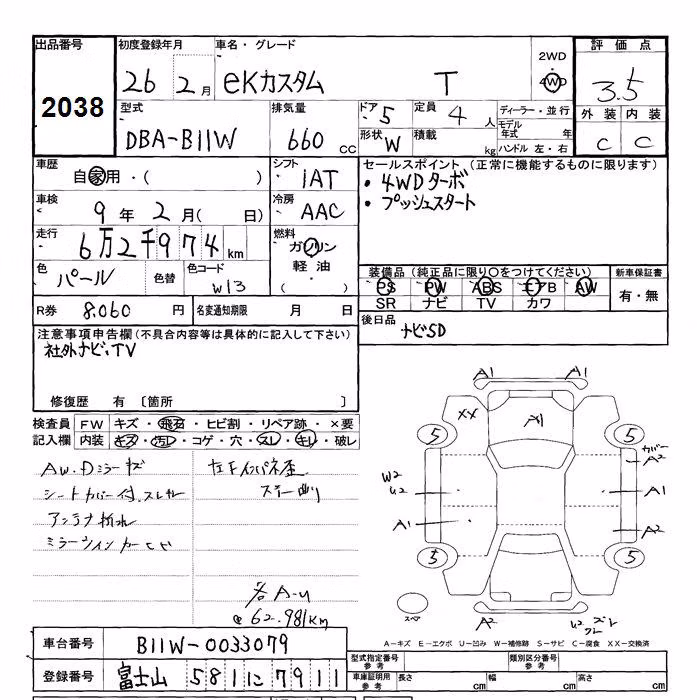 出品番号 初度登録年月 車名・グレード 2WD 評価点
2038 26 2月 eKカスタム T 4WD 3.5
型式 排気量 ドア 5 定員 4人 ディーラー・並行 外装 内装
DBA-B11W 660cc 形状 W 積載 kg モデル年式 年 C C
ハンドル 左・右
車歴 自家用・( ) シフト 1AT セールスポイント (正常に機能するものに限ります)
車検 9年2月( 日) 冷房 AAC ・4WDターボ
・プッシュスタート
走行 6万2千974km 燃料 ガソリン
軽油・
( )
色 パール 色替 色コード W13 装備品 (純正品に限り○をつけてください) 新車保証書
PS PW ABS エアB AW 有・無
SR ナビ TV カワ
R券 8,060円 名変通知期限 月 日 後日品 ナビSD
注意事項申告欄(不具合内容等は具体的に記入して下さい)
社外ナビ、TV
修復歴 有 〔箇所 〕
検査員 FW キズ・飛石・ヒビ割・リペア跡・×要
記入欄 内装 キズ・汚レ・コゲ・穴・スレ・キレ・破レ
AW.Dミラーキズ
シートカバー付.スレキレ
アンテナ折れ
ミラーウインカーヒビ
各A-U
@62.981km
A1 A1
XX A1
5 5
カバー
A2
W2
U2 A1
A1 A2
5 5
スペア A2 U2
A-キズ E-エクボ U-凹み W-補修跡 S-サビ C-腐食 XX-交換済
車台番号 B11W-0033079
型式指定番号 参考 類別区分番号 参考
登録番号 富士山 581 に 7911
車庫証明用 参考 長さ cm 幅 cm 高さ cm